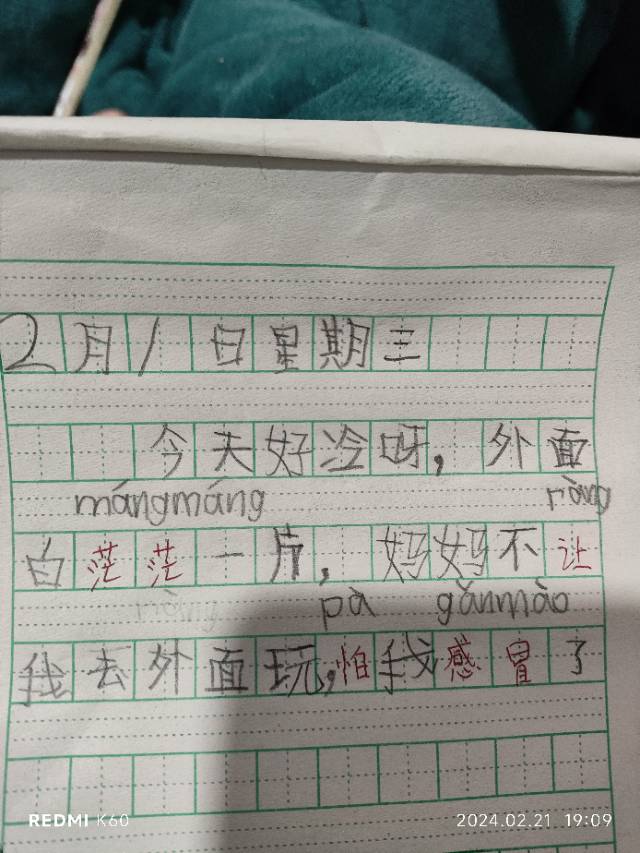 2月1日星期三
今天好冷呀，外面
mángmáng ràng
白茫茫一片，妈妈不让
ràng pà gǎnmào
我去外面玩，怕我感冒了
REDMI K60 2024.02.21 19:09